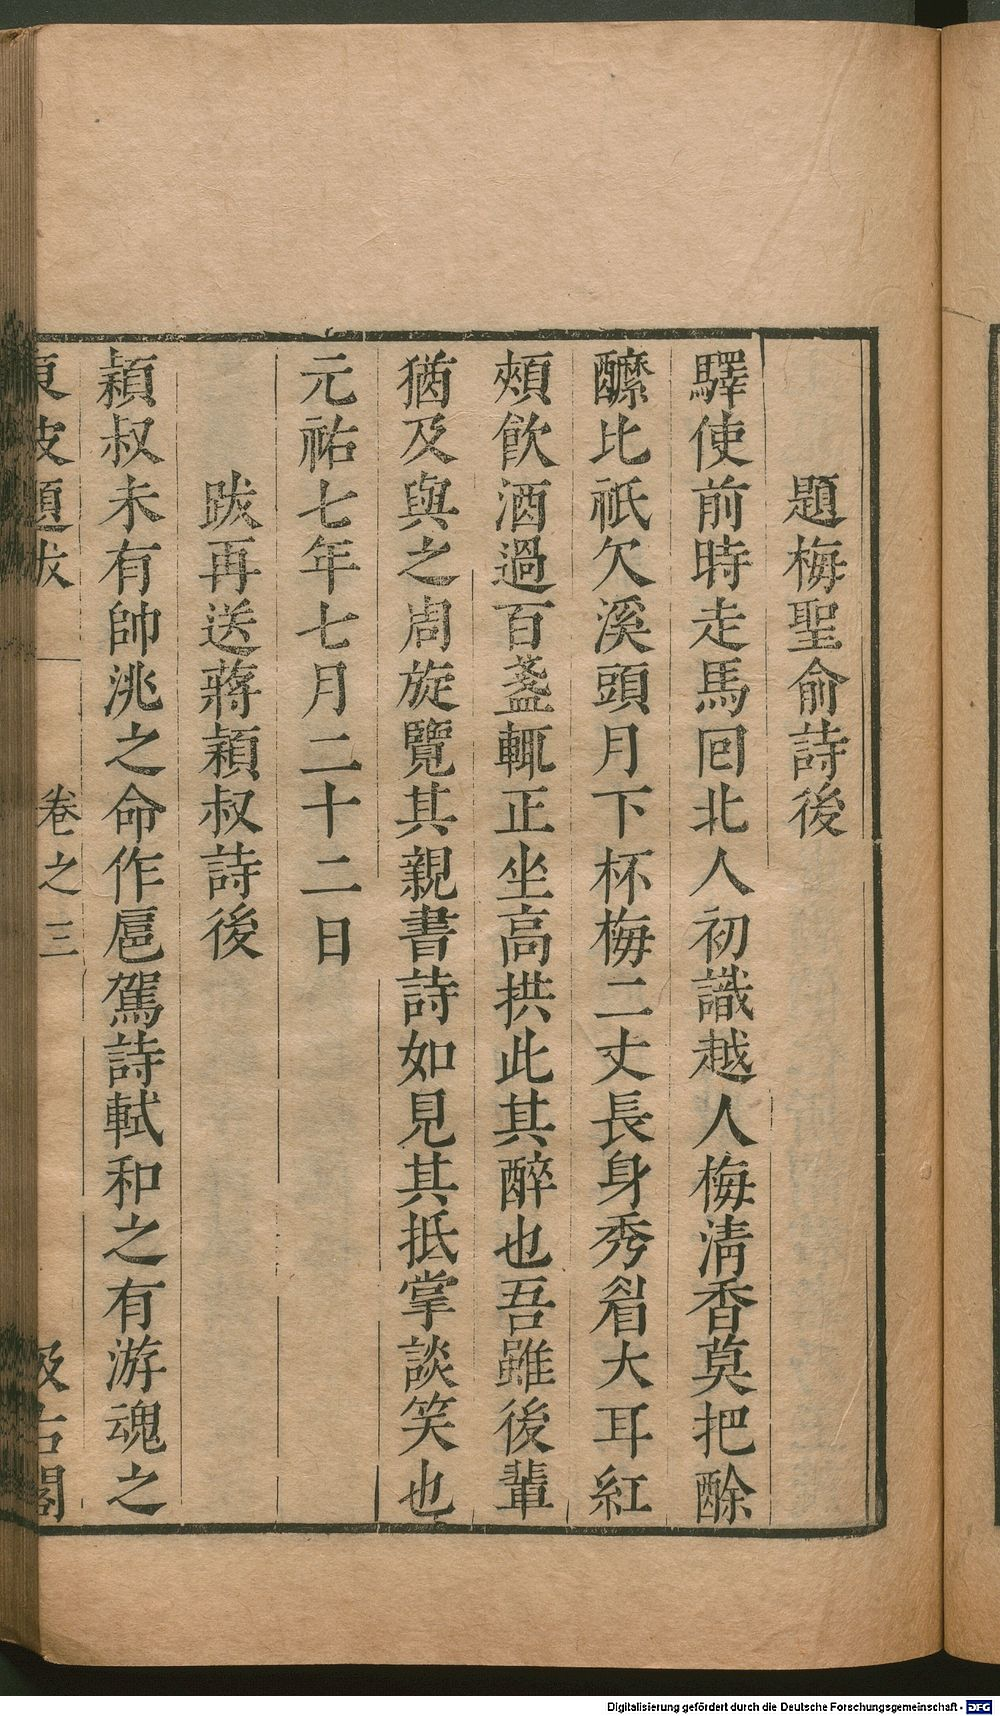 題梅聖俞詩後
驛使前時走馬回北人初識越人梅清香莫把酴
醿比祇欠溪頭月下杯梅二丈長身秀眉大耳紅
頰飲酒過百盞輒正坐高拱此其醉也吾雖後輩
猶及與之周旋覽其親書詩如見其抵掌談笑也
元祐七年七月二十二日
跋再送蔣穎叔詩後
穎叔未有帥洮之命作扈駕詩軾和之有游魂之
東坡題跋 卷之三 汲古閣
Digitalisierung gefördert durch die Deutsche Forschungsgemeinschaft - DFG